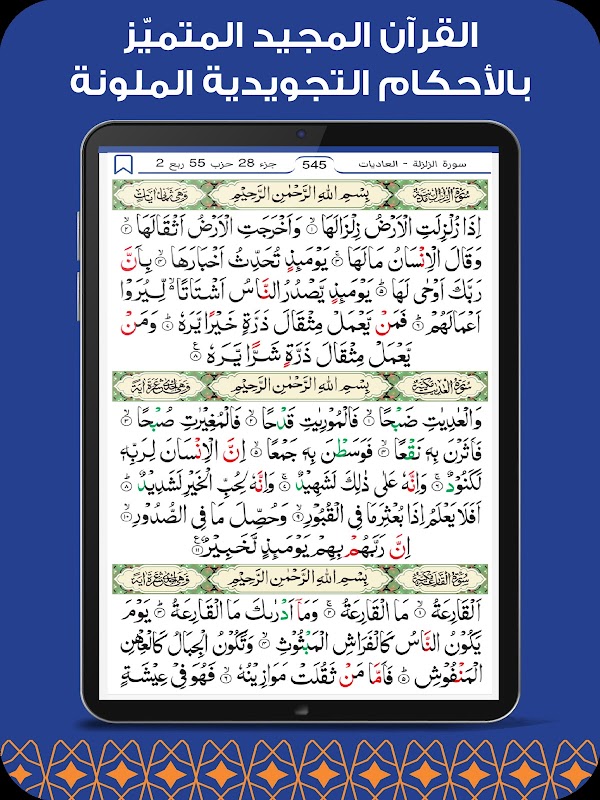 القرآن المجيد المتميّز
بالأحكام التجويدية الملونة
سورة الزلزلة - العاديات 545 جزء 28 حزب 55 ربع 2
بِسْمِ اللهِ الرَّحْمٰنِ الرَّحِيْمِ
اِذَا زُلْزِلَتِ الْاَرْضُ زِلْزَالَهَا ۝١ وَاَخْرَجَتِ الْاَرْضُ اَثْقَالَهَا ۝٢
وَقَالَ الْاِنْسَانُ مَالَهَا ۝٣ يَوْمَىِٕذٍ تُحَدِّثُ اَخْبَارَهَا ۝٤ بِاَنَّ
رَبَّكَ اَوْحٰى لَهَا ۝٥ يَوْمَىِٕذٍ يَّصْدُرُ النَّاسُ اَشْتَاتًا ۙ لِّيُرَوْا
اَعْمَالَهُمْ ۝٦ فَمَنْ يَّعْمَلْ مِثْقَالَ ذَرَّةٍ خَيْرًا يَّرَهٗ ۝٧ وَمَنْ
يَّعْمَلْ مِثْقَالَ ذَرَّةٍ شَرًّا يَّرَهٗ ۝٨
بِسْمِ اللهِ الرَّحْمٰنِ الرَّحِيْمِ
وَالْعٰدِيٰتِ ضَبْحًا ۝١ فَالْمُوْرِيٰتِ قَدْحًا ۝٢ فَالْمُغِيْرٰتِ صُبْحًا ۝٣
فَاَثَرْنَ بِهٖ نَقْعًا ۝٤ فَوَسَطْنَ بِهٖ جَمْعًا ۝٥ اِنَّ الْاِنْسَانَ لِرَبِّهٖ
لَكَنُوْدٌ ۝٦ وَاِنَّهٗ عَلٰى ذٰلِكَ لَشَهِيْدٌ ۝٧ وَاِنَّهٗ لِحُبِّ الْخَيْرِ لَشَدِيْدٌ ۝٨
اَفَلَا يَعْلَمُ اِذَا بُعْثِرَ مَا فِى الْقُبُوْرِ ۝٩ وَحُصِّلَ مَا فِى الصُّدُوْرِ ۝١٠
اِنَّ رَبَّهُمْ بِهِمْ يَوْمَىِٕذٍ لَّخَبِيْرٌ ۝١١
بِسْمِ اللهِ الرَّحْمٰنِ الرَّحِيْمِ
اَلْقَارِعَةُ ۝١ مَا الْقَارِعَةُ ۝٢ وَمَآ اَدْرٰىكَ مَا الْقَارِعَةُ ۝٣ يَوْمَ
يَكُوْنُ النَّاسُ كَالْفَرَاشِ الْمَبْثُوْثِ ۝٤ وَتَكُوْنُ الْجِبَالُ كَالْعِهْنِ
الْمَنْفُوْشِ ۝٥ فَاَمَّا مَنْ ثَقُلَتْ مَوَازِيْنُهٗ ۝٦ فَهُوَ فِىْ عِيْشَةٍ